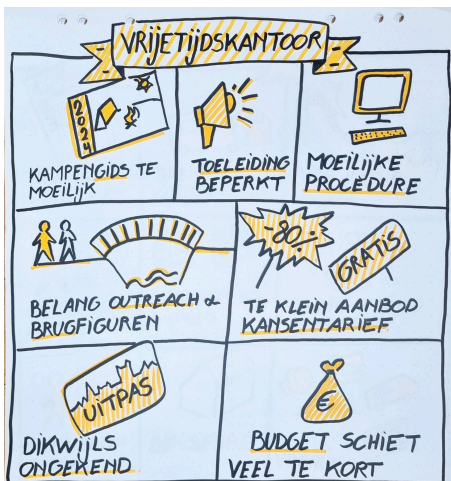 VRIJETIJDSKANTOOR
2024
KAMPENGIDS TE
MOEILIJK
TOELEIDING
BEPERKT
MOEILIJKE
PROCEDURE
BELANG OUTREACH &
BRUGFIGUREN
-80.-
GRATIS
TE KLEIN AANBOD
KANSENTARIEF
UITPAS
DIKWIJLS
ONGEKEND
€
BUDGET SCHIET
VEEL TE KORT